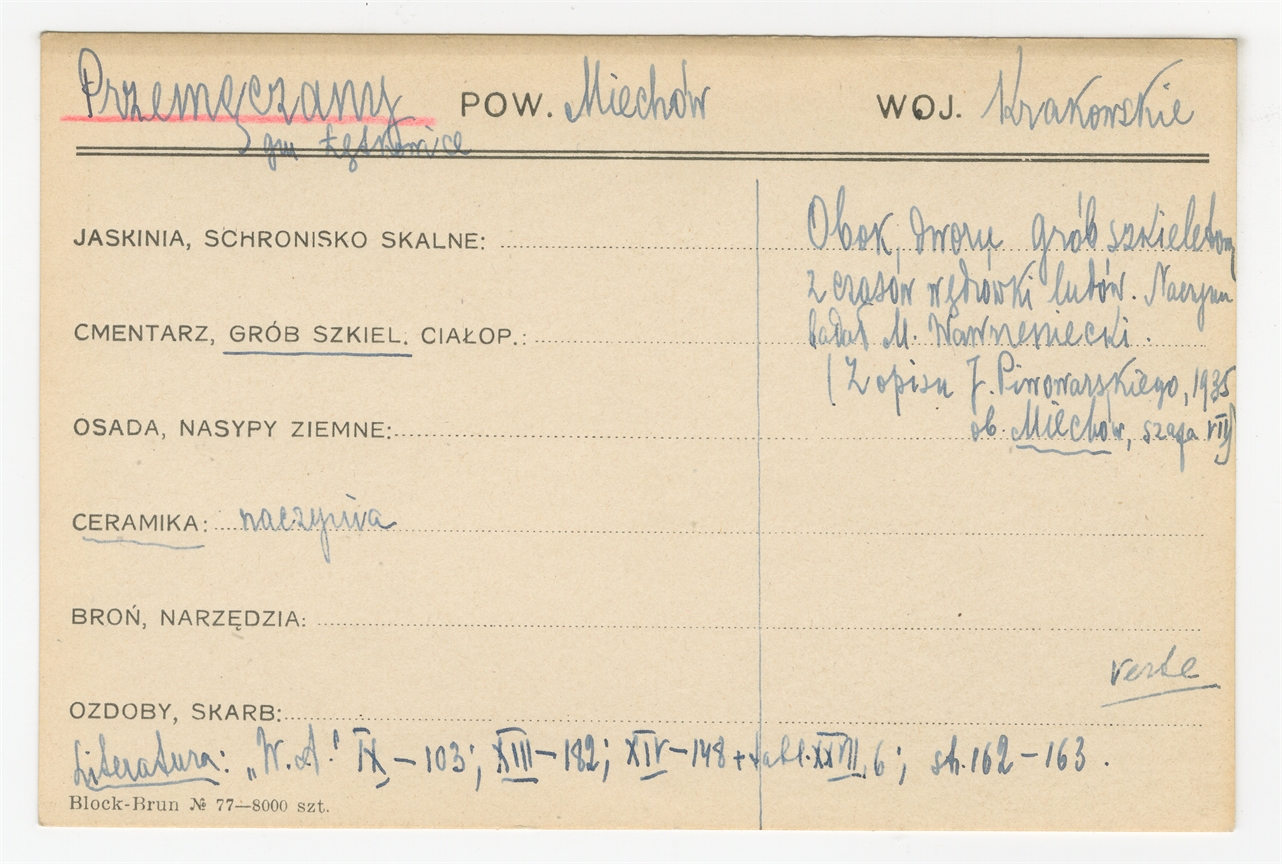 Przemęczany POW. Miechów WOJ. Krakowskie
gm Łętkowice
JASKINIA, SCHRONISKO SKALNE:
CMENTARZ, GRÓB SZKIEL. CIAŁOP.:
OSADA, NASYPY ZIEMNE:
CERAMIKA: naczynia
BROŃ, NARZĘDZIA:
OZDOBY, SKARB:
Obok dworu grób szkieletowy
z czasów wędrówki ludów. Naczynia
badał M. Wawrzeniecki.
(Z opisu J. Piwowarskiego, 1935
ob. Miechów, szafa VII)
verte
Literatura: „W. A." IX – 103; XIII – 182; XIV – 148 + tabl. XXVII, 6; st. 162 – 163.
Block-Brun № 77—8000 szt.